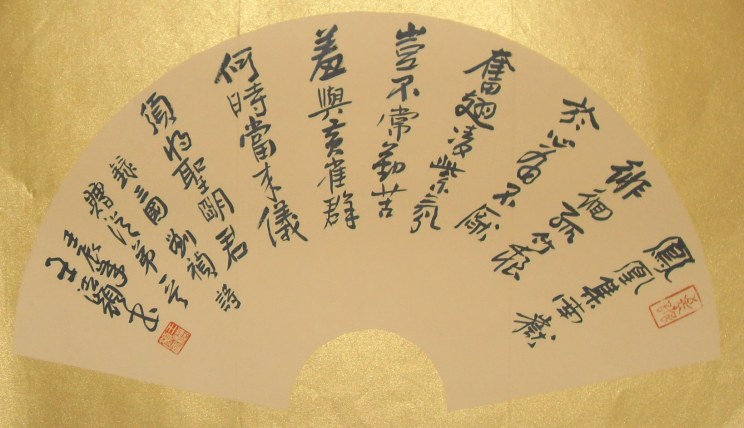 鳳凰集南嶽
徘徊孤竹根
於心有不厭
奮翅凌紫氛
豈不常勤苦
羞與黃雀群
何時當来儀
須將聖明君
錄三國劉禎詩
贈從弟
壬辰
書